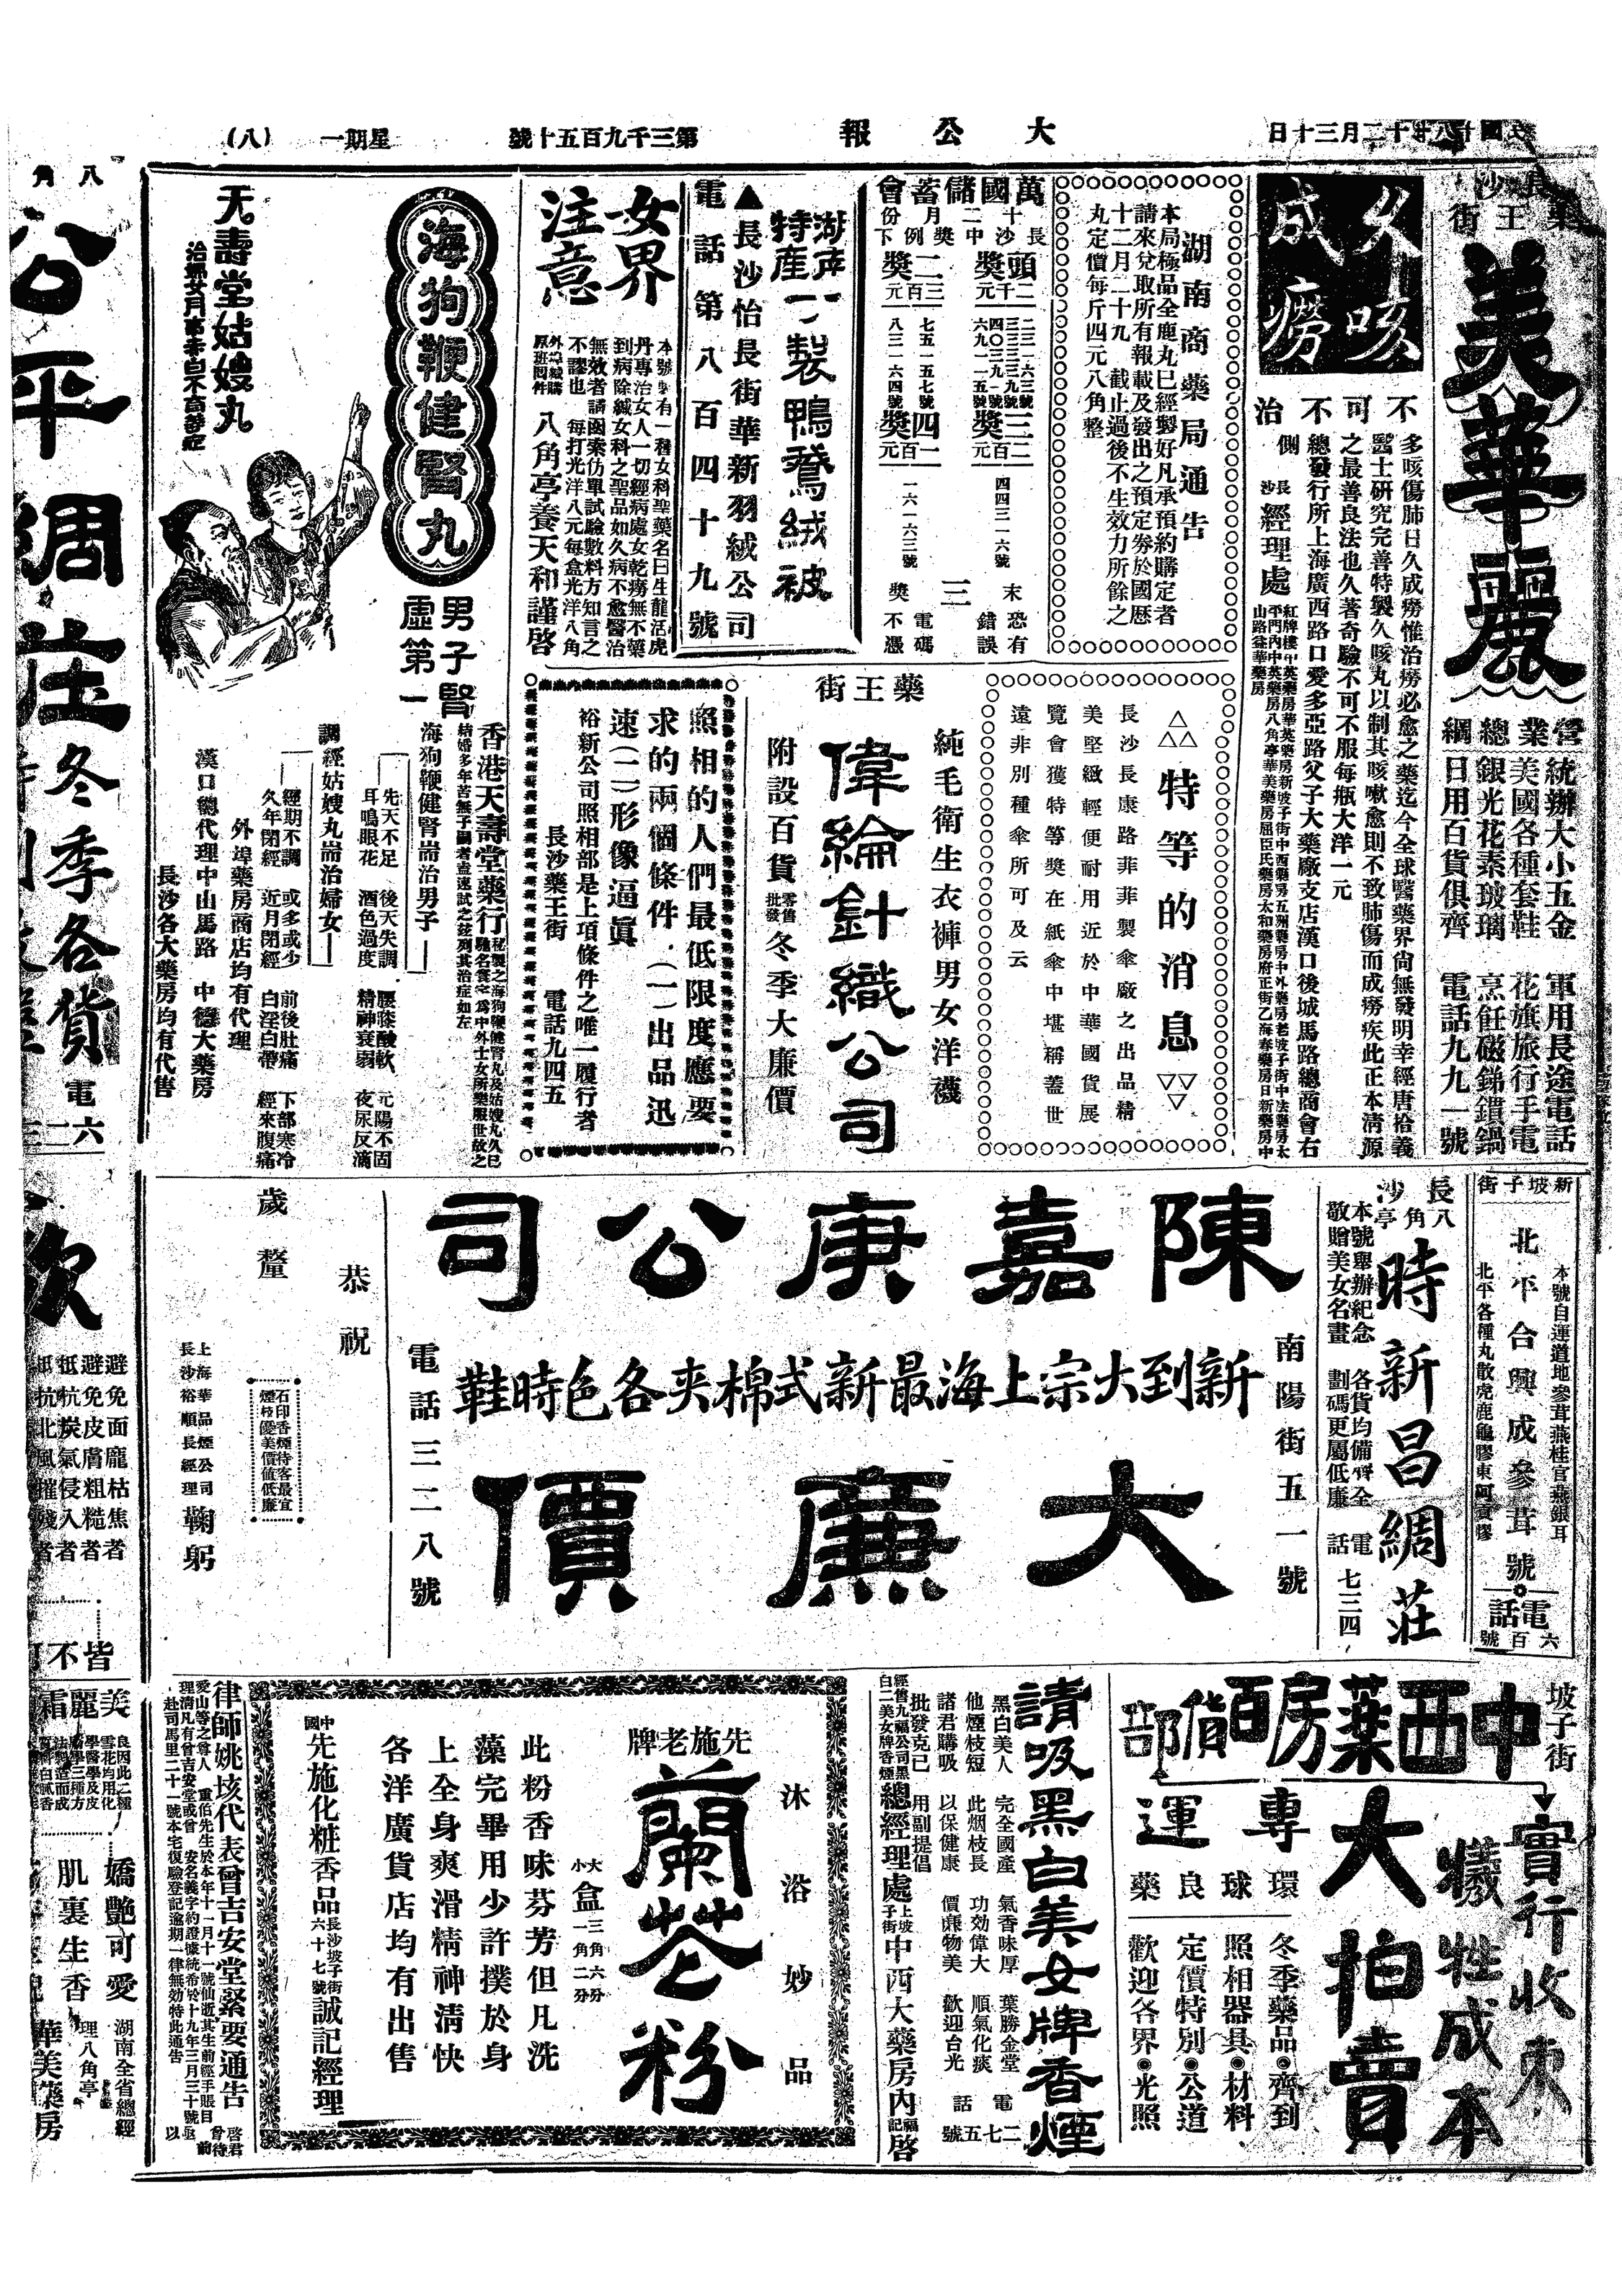 民國十八年十二月三十日
大公報
第三千九百五十號
星期一
(八)
長沙
藥王街
美華麗
營業總綱
統辦大小五金
美國各種套鞋
銀光花素玻璃
日用百貨俱齊
軍用長途電話
花旗旅行手電
烹飪磁銻鑵鍋
電話九九一號
久咳成癆
不可不治
多咳傷肺日久成癆惟治癆必愈之藥迄今全球醫藥界尚無發明幸經唐拾義
醫士研究完善特製久咳丸以制其咳嗽愈則不致肺傷而成癆疾此正本淸源
之最善良法也久著奇驗不可不服每瓶大洋一元
總發行所上海廣西路口愛多亞路父子大藥廠支店漢口後城馬路總商會右
側
長沙經理處
湖南商藥局通告
本局極品全鹿丸已經製好凡承預約購定者
請來兌取所有報載及發出之預定劵於國歷
十二月二十九 截止過後不生效力所餘之
丸定價每斤四元八角整
萬國儲蓄會
十二月份
長沙中獎例下
頭獎二千元
二三一六三號
三三三三九號
四〇三九一號
六九一一五號
三獎二百元
四四三一六號
二獎三百元
七五一五七號
八三一六四號
四獎一百元
一六一六三號
末獎三
恐有錯誤
電碼不憑
湖南特產
製鴨鵞絨被
▲長沙怡長街華新羽絨公司
電話第八百四十九號
女界注意
本號製有一種女科聖藥名曰生龍活虎
丹專治女人一切經病處女乾癆無不藥
到病除緘女科之聖品如久病不愈醫治
無效者請函索仿單試驗數料方知言之
不謬也 每打光洋八元每盒光洋八角
外埠緘購原班囘件
八角亭養天和謹啓
海狗鞭健腎丸
男子腎虛第一
天壽堂姑嫂丸
治婦女月事赤白不育等症
香港天壽堂藥行
秘製之海狗鞭健腎丸及姑嫂丸久已
馳名寰宇爲中外士女所樂服世故之
結婚多年苦無子嗣者盍速試之茲列其治症如左
海狗鞭健腎耑治男子
先天不足 後天失調 腰膝酸軟 元陽不固
耳鳴眼花 酒色過度 精神衰弱 夜尿反滴
調經姑嫂丸耑治婦女
經期不調 或多或少 前後肚痛 下部寒冷
久年閉經 近月閉經 白淫白帶 經來腹痛
外埠藥房商店均有代理
漢口總代理中山馬路 中德大藥房
長沙各大藥房均有代售
特等的消息
長沙長康路菲菲製傘廠之出品精
美堅緻輕便耐用近於中華國貨展
覽會獲特等獎在紙傘中堪稱蓋世
遠非別種傘所可及云
藥王街
純毛衛生衣褲男女洋襪
偉綸針織公司
附設百貨零售批發冬季大廉價
照相的人們最低限度應要
求的兩個條件 (一)出品迅
速(二)形像逼眞
裕新公司照相部是上項條件之唯一履行者
長沙藥王街 電話九四五
新坡子街
本號自運道地參茸燕桂官燕銀耳
北平合興成參茸號
北平各種丸散虎鹿龜膠東阿貢膠
電話六百號
長沙八角亭
時新昌綢莊
本號舉辦紀念
敬贈美女名畫
各貨均備齊全
劃碼更屬低廉
電話七三四
陳嘉庚公司
南陽街五一號
新到大宗上海最新式棉夾各色時鞋
電話三二八號
大廉價
恭祝
歲釐
石印香煙待客最宜
煙枝優美價値低廉
上海華品煙公司
長沙裕順長經理
鞠躬
坡子街
中西藥房百貨部
實行收束
犧牲成本
大拍賣
專運
環球良藥
冬季藥品◉齊到
照相器具◉材料
定價特別◉公道
歡迎各界◉光照
請吸黑白美女牌香煙
黑白美人 完全國產 氣香味厚 葉勝金堂
他煙枝短 此烟枝長 功効偉大 順氣化痰
諸君購吸 以保健康 價亷物美 歡迎台光
批發克己 用副提倡
電話二七五號
經售九福公司黑白二美女牌香煙
總經理處上坡子街中西大藥房內福記啓
先施老牌
沐浴妙品
蘭花粉
大盒三角六分
小盒一角二分
此粉香味芬芳但凡洗
藻完畢用少許撲於身
上全身爽滑精神淸快
各洋廣貨店均有出售
中國先施化粧香品長沙坡子街六十七號誠記經理
律師姚垓代表曾吉安堂緊要通告
八角
公平綢莊
冬季各貨
電
避免面龐枯焦者
避免皮膚粗糙者
抵抗炭氣侵入者
抵抗北風摧殘者
皆不可
美麗霜
嬌艷可愛
肌裏生香
湖南全省總經理八角亭
華美藥房